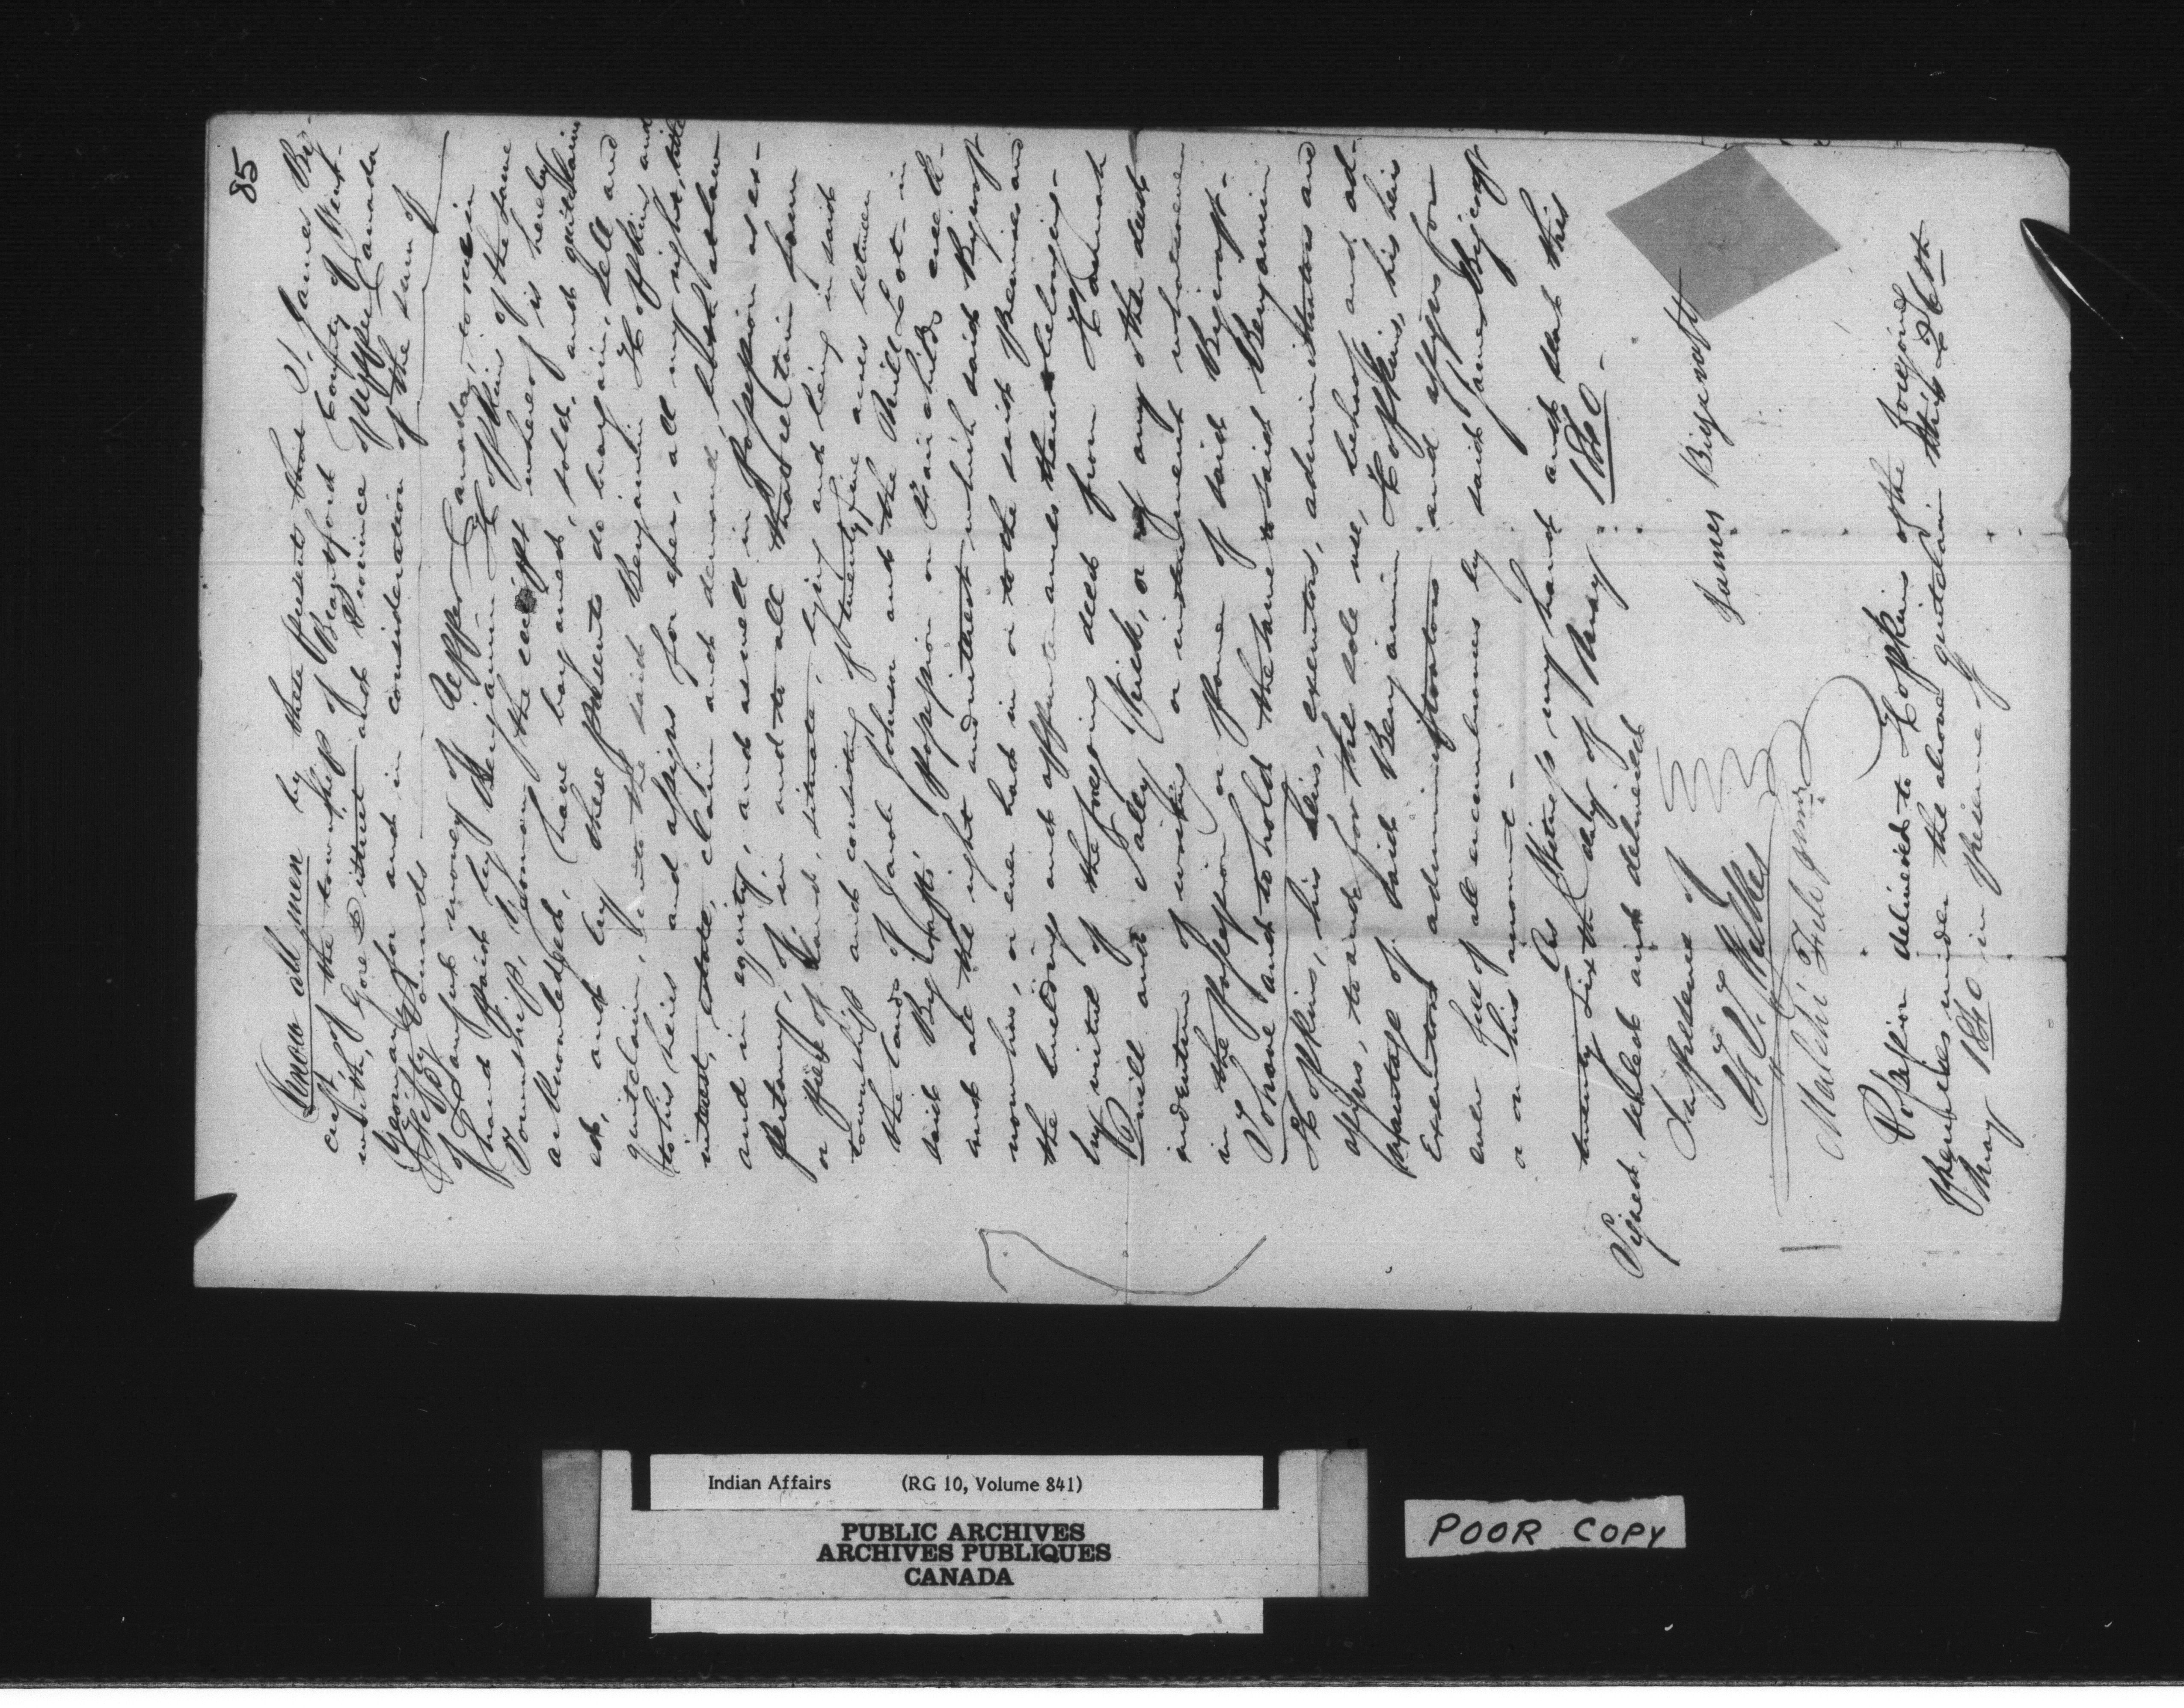 85
Know all men by these presents that I, James Big-
croft of the township of Brantford County of Went-
worth, Gore District and Province of Upper Canada
Yeoman, for and in consideration of the sum of
Fifty Pounds
of Lawful money of Upper Canada, to me in
hand paid by Benjamin Hopkins of the same
Township, Yeoman, the receipt whereof is hereby
acknowledged, have bargained, sold, and quitclaim
ed, and by these presents do bargain, sell and
quitclaim, unto the said Benjamin Hopkins and
to his heirs and assigns for ever, all my right, title
interest, estate, claim and demand, both at law
and in equity, and as well in possession as ex-
pectancy, of, in and to all that certain farm
or piece of Land, situate, lying and being in said
township and consisting of twenty five acres between
the lands of Jacob Johnson and the Mill Lot - in
said Bigcrofts' possession or Fairchilds creek -
and all the right and interest which said Bigcroft
now has, or ever had in or to the said premises and
the buildings and appurtenances thereto belonging -
by virtue of the foregoing deed from Hannah
Quill and Sally Weik, or of any other deed
indenture of writing or instrument whatsoever
in the possession or power of said Bigcroft -
To have and to hold the same to said Benjamin
Hopkins, his heirs, executors, administrators and
assigns, to and for the sole use, behoof and ad-
vantage of said Benjamin Hopkins, his heirs
Executors administrators and assigns for
ever free of all encumbrances by said James Bigcroft
or on his account -
As Witness my hand and seal this
twenty sixth day of May 1840 -
Signed, sealed and delivered
In presence of
James Bigcroft
Malichi File
Possession delivered to Hopkins of the foregoing
premises under the above quitclaim this 26th
May 1840 in presence of
Indian Affairs (RG 10, Volume 841)
PUBLIC ARCHIVES
ARCHIVES PUBLIQUES
CANADA
POOR COPY